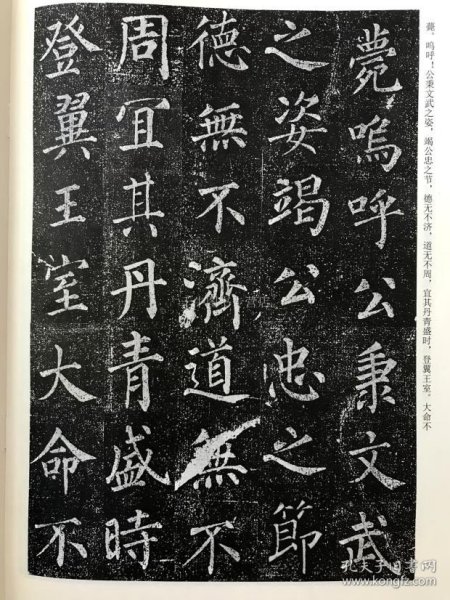 薨。呜呼！公秉文武之姿，竭公忠之节，德无不济，道无不周，宜其丹青盛时，登翼王室。大命不
薨嗚呼公秉文武
之姿竭公忠之節
德無不濟道無不
周宜其丹青盛時
登翼王室大命不
孔夫子旧书网
www.kongfz.com